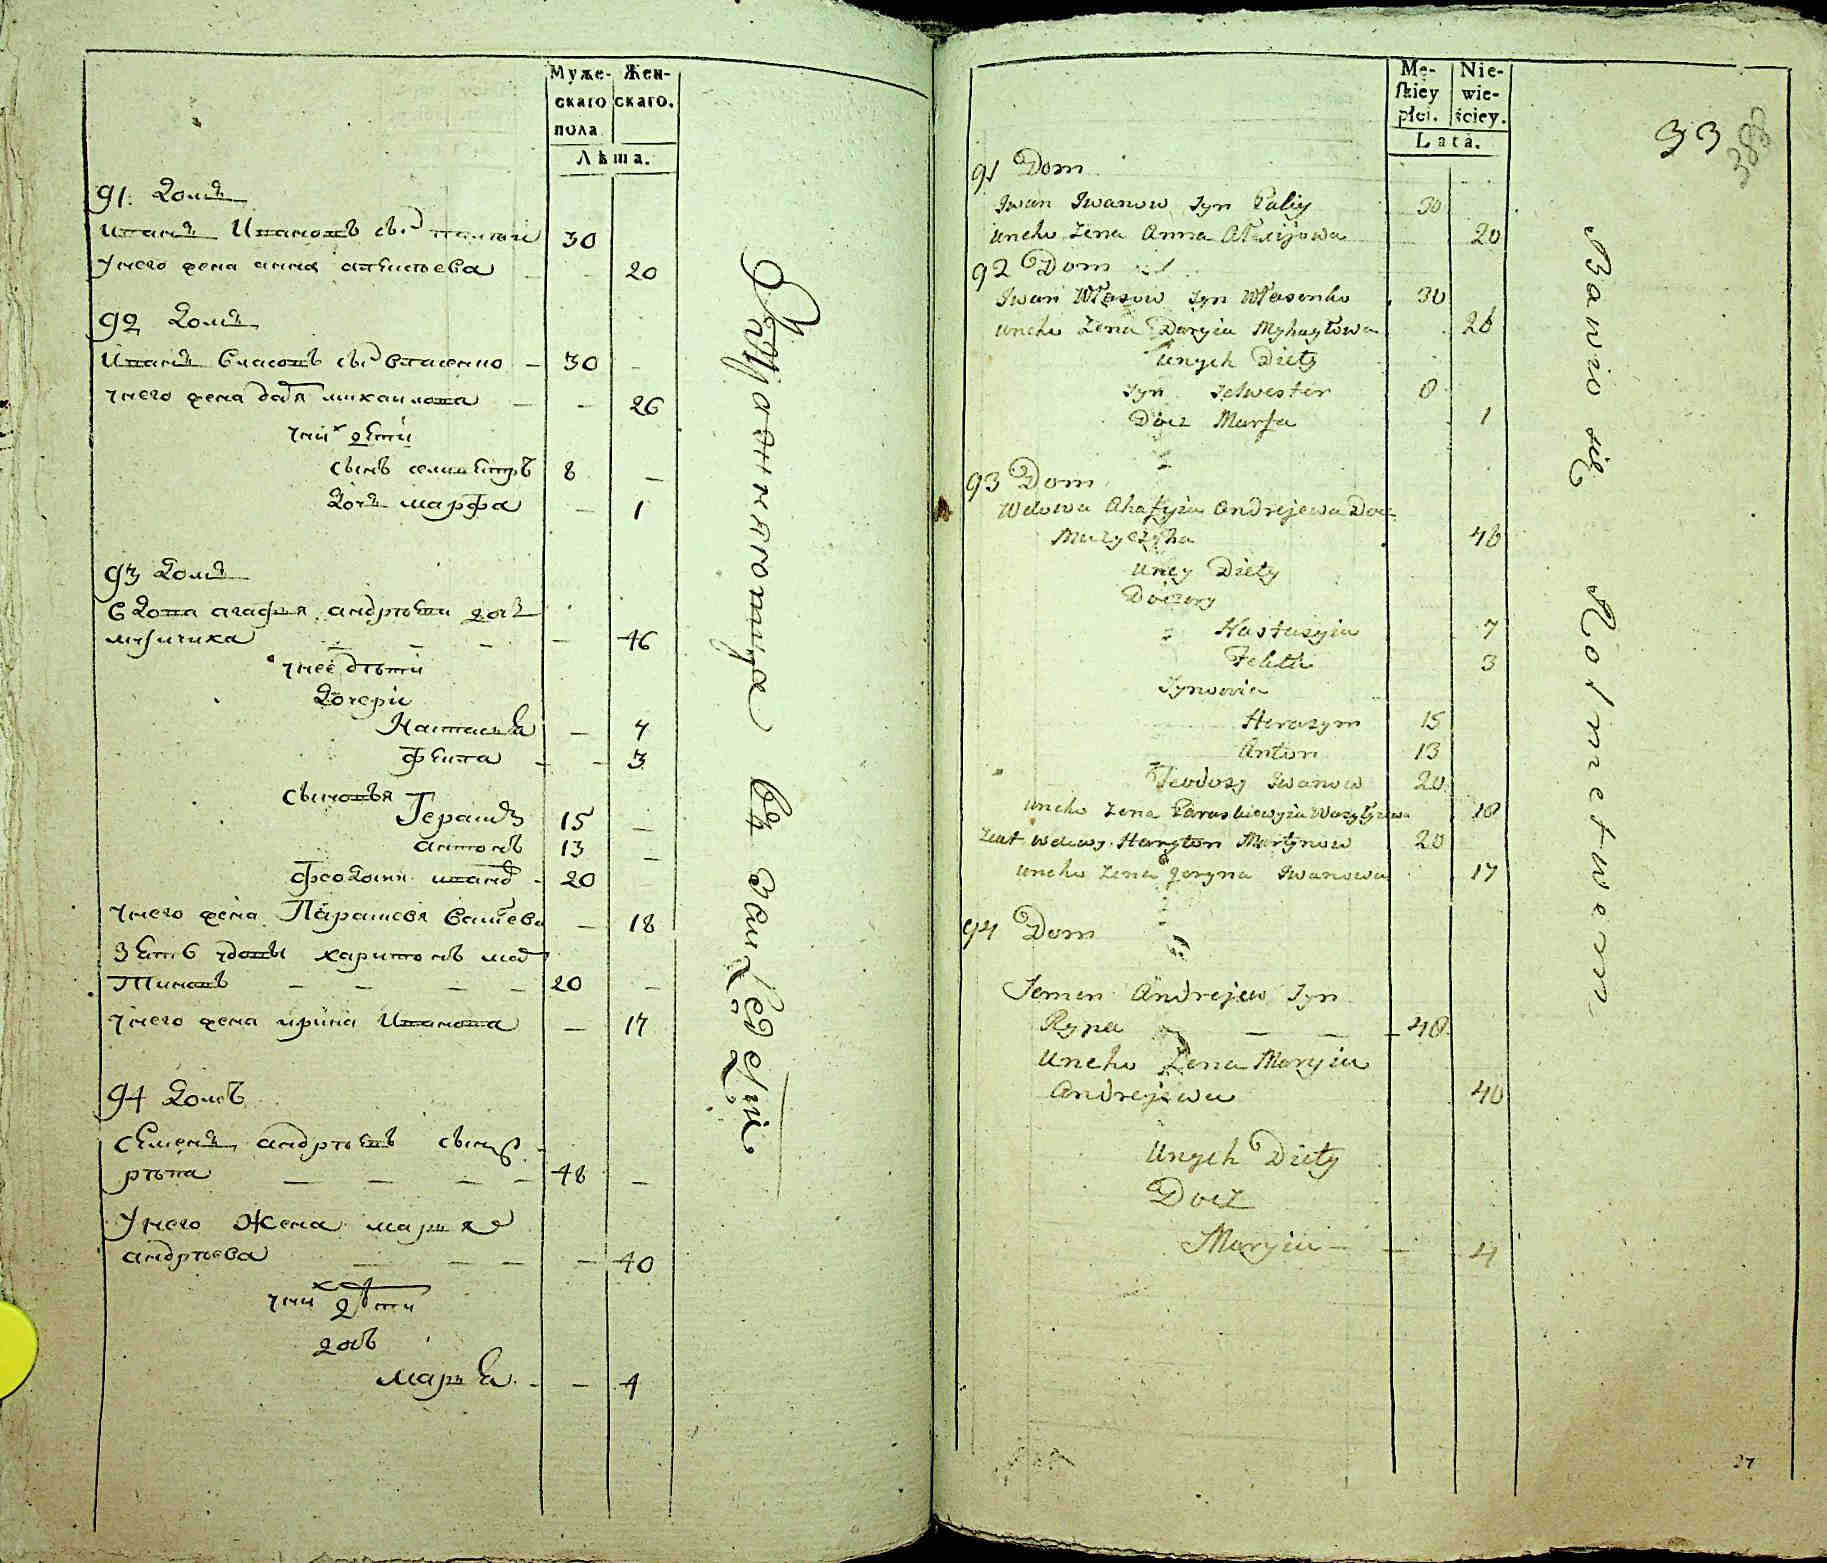 Муже-
скаго
пола.
Жен-
скаго.
Лѣта.
91. Домъ
Иванъ Ивановъ сы͏нъ палий 30
У него жена анна алексѣева — — 20
92 Домъ
Иванъ Власовъ сынъ власенко — 30 —
У него жена даря михаилова — — 26
у них дѣти
сынъ селивестръ 8 —
Дочь марфа — 1
93 Домъ
Вдова агафия андрѣева дочь
музичиха — — — — 46
у нее дѣти
Дочери
Настася — 7
фекла — — 3
сыновья
Герасимъ 15 —
антонъ 13 —
феодосий ивановъ - 20
У него жена Парасковя василева — 18
Зять вдовы харитонъ мар
тиновъ — — — — 20 —
У него жена ирина Иванова — 17
94 Домъ
Семенъ андрѣевъ сынъ
рѣпа — — — — 48 —
У него жена маря
андрѣева — — — — 40
у них дѣти
дочь
маря - — 4
въ замледелии
Mę-
skiey
płci.
Nie-
wie-
ściey.
Lata.
33
388
91 Dom
Iwan Iwanow Syn Paliy 30
uneho Żena Anna Alexijowa 20
92 Dom
Iwan Własow Syn Własenko 30
uneho Żena Daryia Myhayłowa 26
unych Diety
Syn Selwester 8
Docz Marfa 1
93 Dom
Wdowa Ahafyia Andrejewa Docz
Muzyczyha 46
uney Diety
Doczery
Nastazyia 7
Fekla 3
Synowia
Herasym 15
Anton 13
Teodozy Iwanow 20
uneho Żena Paraskiewyia Wasylijewa 18
Ziat wdowy Haryton Martynow 20
uneho Żena Jeryna Iwanowa 17
94 Dom
Semen Andrejew Syn
Rypa — — — 48
Uneho Żena Maryia
Andrejewa 40
Unych Diety
Docz
Maryia — — 4
Bawio się Rolnictwem
27